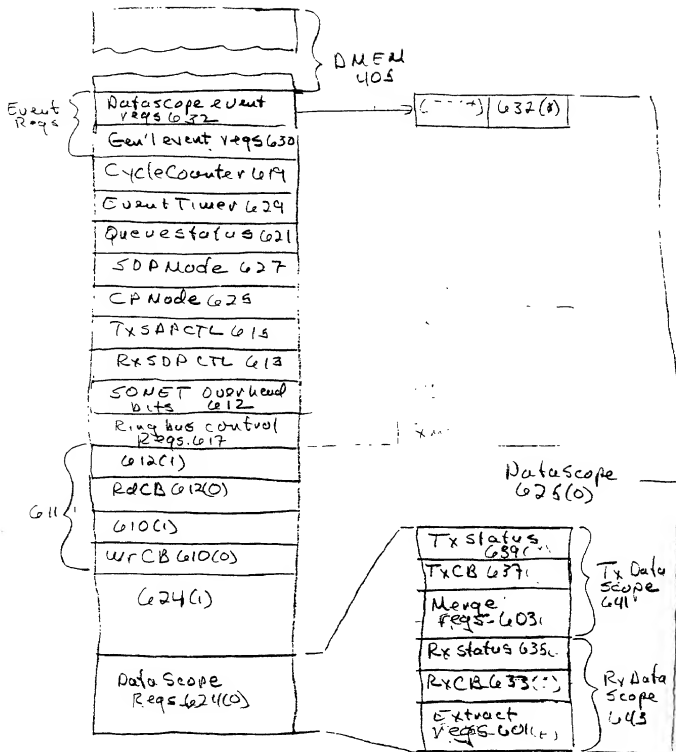 DMEM
405
Event
Regs
Datascope event
regs 632
632(0)
Gen'l event regs 630
CycleCounter 619
Event Timer 629
Queue status 621
SDP Mode 627
CP Mode 625
TxSDPCTL 615
RxSDP CTL 613
SONET Overhead
bits 612
Ring bus control
Regs. 617
611
612(1)
RdCB 612(0)
610(1)
WrCB 610(0)
624(1)
Data Scope
Regs 624(0)
DataScope
625(0)
Tx status
639(
TxCB 637(
Merge
regs 603(
Tx Data
Scope
641
Rx status 635(
RxCB 633(
Extract
regs 601(
Rx Data
Scope
643